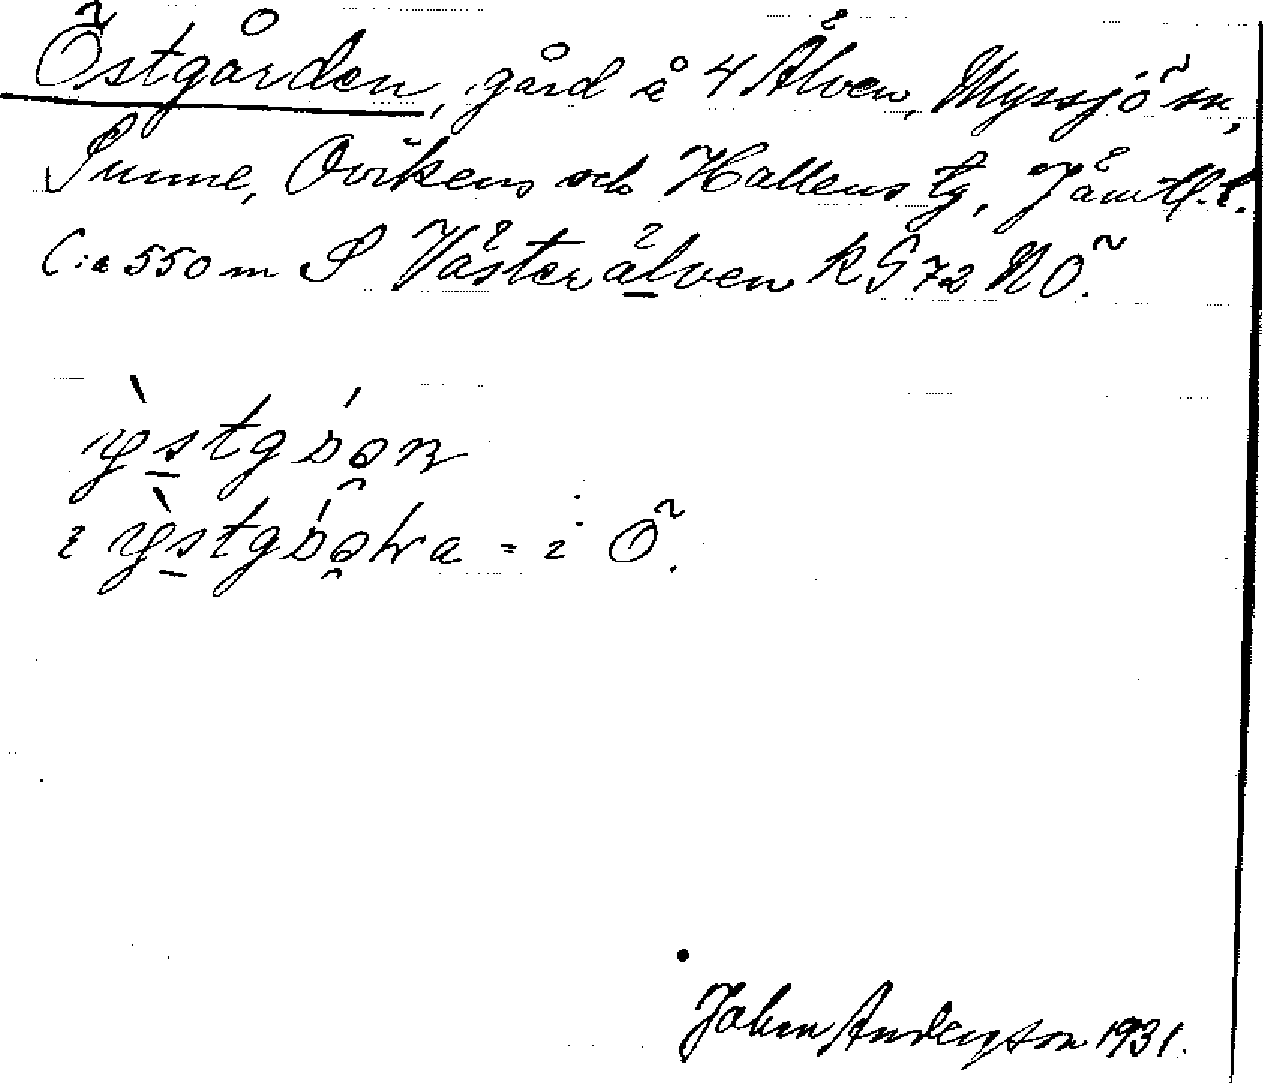 Östgården, gård å 4 Älven, Myssjö sn,
Sunne, Ovikens och Hallens tg, Jämtl. l.
C:a 550 m S Västerälven k G 72 NÖ.
i = i Ö.
John Anderzson 1931.